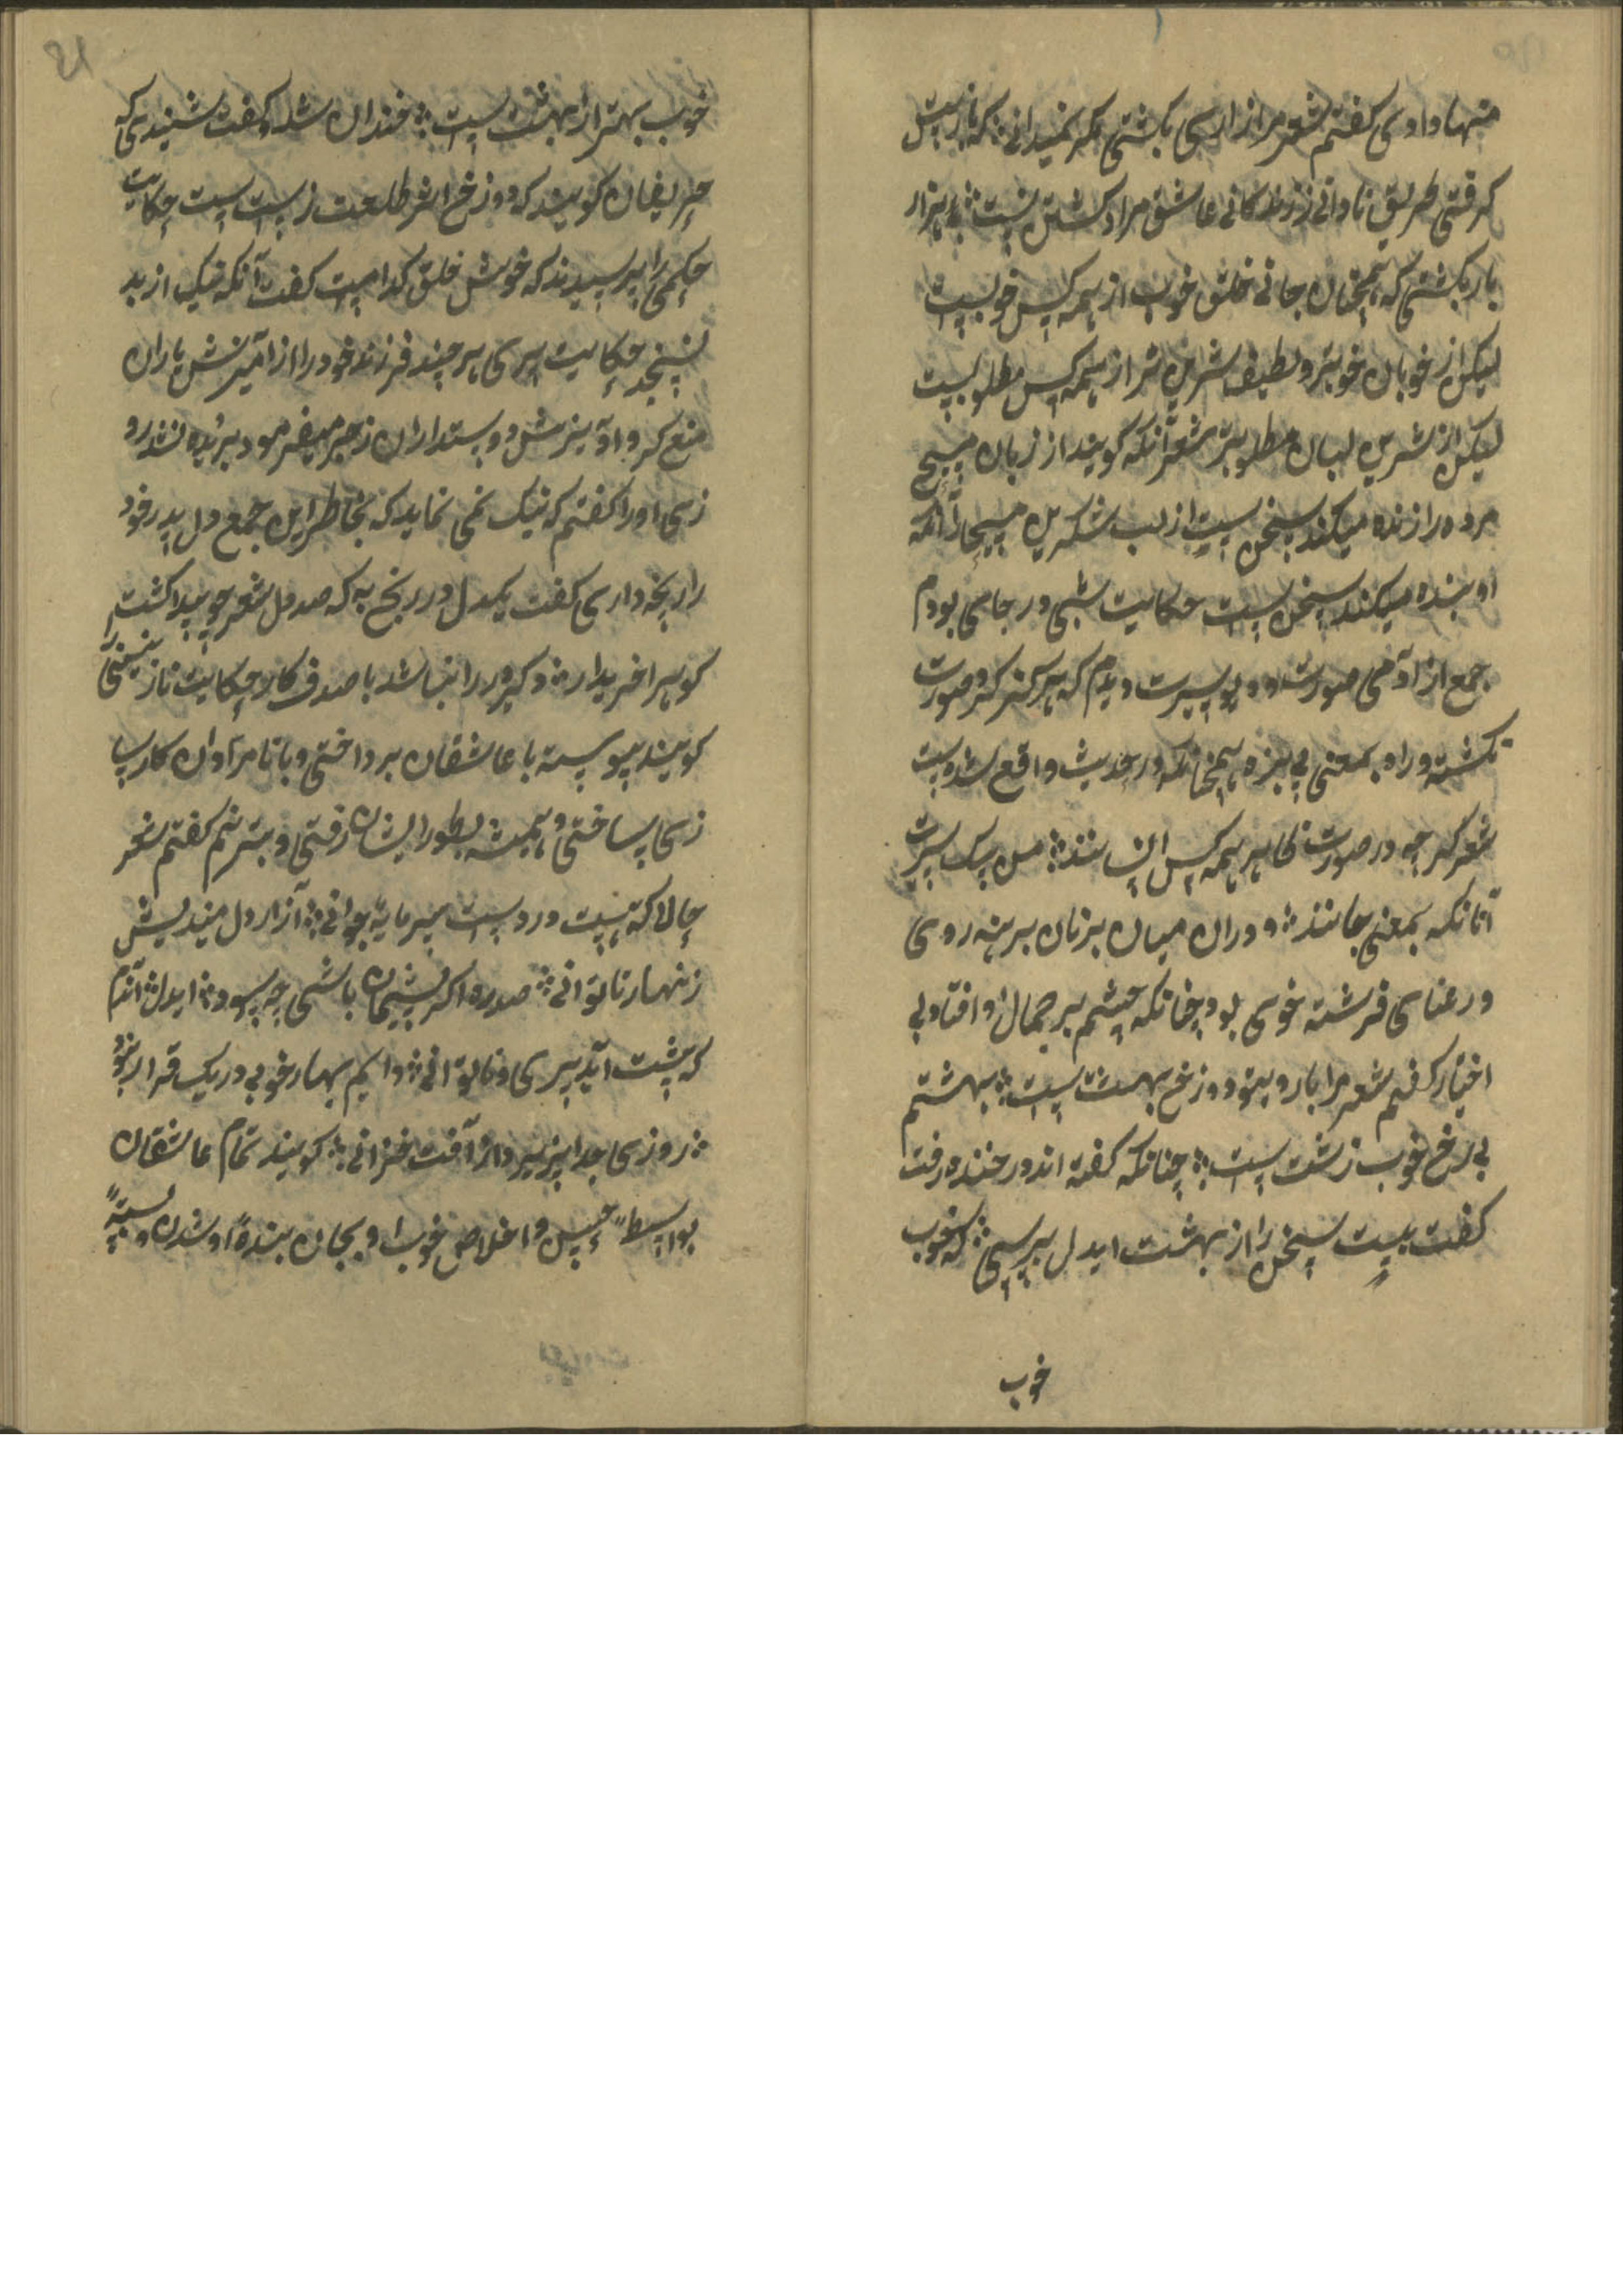 منها داوی کفتم شعر مرا از ازای بکشتی مکر نمیدانی ؛ که باز پیش
کرفتی طریق نادانی ز زندکانی عاشق مراد کشتن نیست ؛ هزار
بار بکشتی که همچنان جانی خلق خوب از همه کس خوبست
لیکن از خوبان خوبتر و لطیف شیرین تر از همه کس مطلوبست
لیکن از شیرین لبان مطلوبتر شعر آنکه کویند از زبان مسیح
مرده را زنده میکند سخن ست از لب شکرین مسیحا را آنکه
او بنده میکند سخن ست حکایت شبی در جای بودم
جمع از آدمی صورت و دیو سیرت دیدم که هرکز کرد صورت
نکشته و راه بمعنی پی نبرده همچنانکه در حدیث واقع شده ست
شعر کرچه در صورت ظاهر همه کس انسانند ؛ من سک سیرت
آنانکه بمعنی جانند ؛ و دران میان بزنان برهنه روی
و رعنای فرشته خوی بود چنانکه چشمم بر جمال او افتاد بی
اختیار کفتم شعر مرا با روی تو دوزخ بهشت ست ؛ بهشتم
بی رخ خوب زشت ست ؛ چنانکه کفته اند در خنده رفت
کفت بیت سخن را از بهشت ایدل بپرسی ؛ که خوب
خوب
خوب بهتر از بهشت ست ؛ خندان شد و کفت شنیدی که
حریفان کویند که دوزخ اثر طلعت زشت ست حکایت
حکیمی را پرسیدند که خوش خلق کدامست کفت آنکه نیک از بد
نسنجد حکایت پری هر چند فرزند خود را از آمیزش یاران
منع کرد و آویزش دوستداران زجر میفرمود بریده نشد رو
زی او را کفتم که نیک نمی نماید که بخاطر این جمع دل پدر خود
را رنجه داری کفت یکدل در رنج به که صد دل شعر چو پیدا کشتم
کوهر خریدار ؛ دکر در را نباشد با صدف کار حکایت نازنینی را
کویند پیوسته با عاشقان پرداختی و با نامرادان کارسا
زی ساختی و همیشه بطور ایشان رفتی و بترنم کفتم شعر
حالا که نیست در دست سرمایه جوانی ؛ آزار دل میندیش
زنهار تا توانی ؛ صدره اکر پشیمان باشی چه سود ایدل ؛ آندم
که پشت آید پیری و ناتوانی ؛ دایم بهار خوبی در یک قرار نبود
؛ روزی جدا پذیرد از آفت خزانی ؛ کویند تمام عاشقان
بواسطه حسن و اخلاص خوب او بجان بنده او شدن و بسته